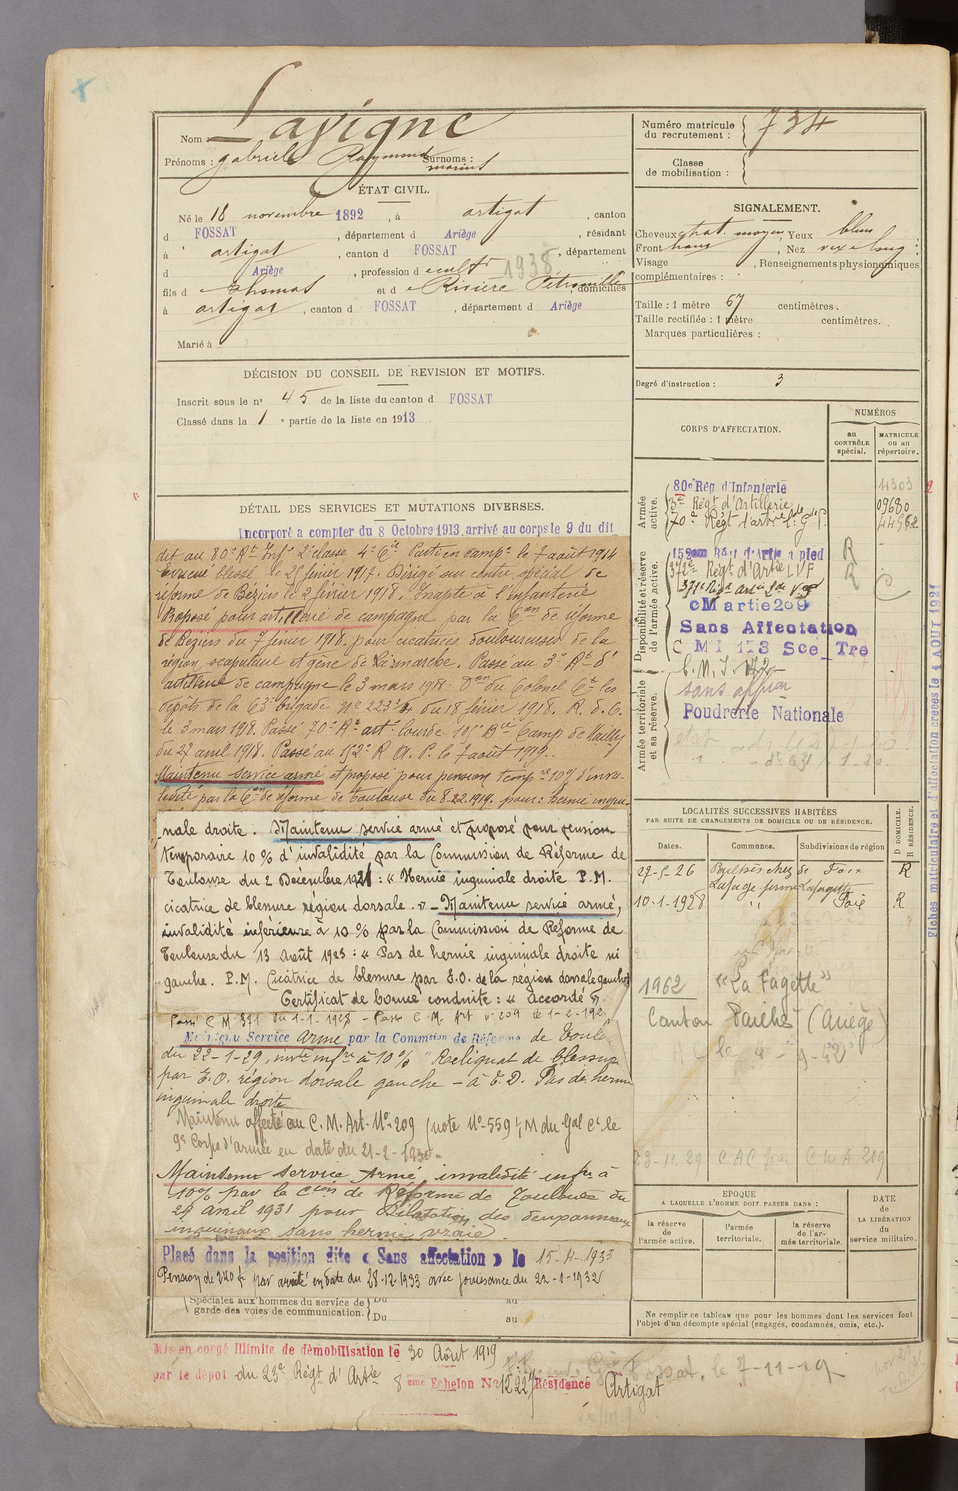 Nom : Lavigne
Prénoms : Gabriel Raymond Surnoms :
Marius
ÉTAT CIVIL.
Né le 18 novembre 1892, à Artigat, canton
d FOSSAT, département d Ariège, résidant
à Artigat, canton d FOSSAT, département
d Ariège, profession de cultr 1938
fils de Thomas et de Rivière Pétronille, domiciliés
à Artigat, canton d FOSSAT, département d Ariège
Marié à
DÉCISION DU CONSEIL DE REVISION ET MOTIFS.
Inscrit sous le n° 45 de la liste du canton d FOSSAT
Classé dans la 1e partie de la liste en 1913
DÉTAIL DES SERVICES ET MUTATIONS DIVERSES.
Incorporé a compter du 8 Octobre 1913, arrivé au corps le 9 du dit
dit au 80e Rt Infie 2e classe 4e Cie Parti en campne le 7 août 1914
Evacué blessé le 25 février 1917. Dirigé sur centre spécial de
réforme de Béziers le 2 février 1918. Inapte à l'infanterie
Proposé pour artillerie de campagne par la Con de réforme
de Béziers du 7 février 1918. pour cicatrices douloureuses de la
région scapulaire et gêne de la marche. Passé au 3e Rt d'
artillerie de campagne le 3 mars 1918. Don du Colonel Ct les
dépôts de la 63e brigade No 223 du 18 février 1918. R. d. C.
le 3 mars 1918. Passé 70e Rt art. lourde 101e Bie Camp de Mailly
du 27 avril 1918. Passé au 152e R. A. P. le 7 août 1919.
Maintenu service armé et proposé pour pension tempre 10% d'inva-
lidité par la Con de réforme de Toulouse du 8.22.1919. pour : hernie ingui
nale droite. Maintenu service armé et proposé pour pension
temporaire 10 % d'invalidité par la Commission de Réforme de
Toulouse du 2 Décembre 1921 : « Hernie inguinale droite P.M.
cicatrice de blessure région dorsale. » - Maintenu service armé,
invalidité inférieure à 10 % par la Commission de Réforme de
Toulouse du 13 août 1923 : « Pas de hernie inguinale droite ni
gauche. P.M. Cicatrice de blessure par E.O. de la region dorsale gauche »
Certificat de bonne conduite : « accordé ».
Passé C M 371 du 1-1-1928 - Passé C. M. Art n° 209 le 1-2-192
Maintenu Service Armé par la Commsion de Réforme de Toulse
du 22-1-29, invté infre à 10% "Reliquat de blessure
par E.O. région dorsale gauche - à E.D. Pas de hernie
inguinale droite
Maintenu affecté au C.M.Art-No-209 (note No-559 1/M du Gal Ct le
9e Corps d'armée en date du 21-2-1930-
Maintenu service Armé, invalidité infre à
10% par la Cion de Réforme de Toulouse du
29 avril 1931 pour Dilatation des deux anneaux
inguinaux sans hernie vraie.
Placé dans la position dite « Sans affectation » le 15-4-1933
Pension de 240 f par arrêté en date du 28-12-1933 avec jouissance du 22-1-1932
Spéciales aux hommes du service de Du au
garde des voies de communication. Du au
Mis en congé illimité de démobilisation le 30 Août 1919
par le dépôt du 23e Régt d'Artie 8ème Echelon No 12227 Résidence Artigat
Fossat, le 7-11-19
Numéro matricule
du recrutement : 734
Classe
de mobilisation :
SIGNALEMENT.
Cheveux chat. moyen, Yeux bleus
Front haut, Nez vexe long ;
Visage , Renseignements physionomiques
complémentaires :
Taille : 1 mètre 67 centimètres.
Taille rectifiée : 1 mètre centimètres.
Marques particulières :
Degré d'instruction : 3
CORPS D'AFFECTATION.
NUMÉROS
au CONTRÔLE spécial.
MATRICULE ou au répertoire.
Armée active.
80e Rég. d'Infanterie 4303
3e Régt d'Artillerie 09680
70e Régt d'artie 44982
Disponibilité et réserve de l'armée active.
152eme Régt d'Artie à pied R
372e Régt d'Artie L.V.F R C
371e Régt
CM artie 209
Sans Affectation
C M I 173 Sce Tre
C. M. I. 172
Armée territoriale et sa réserve.
sans affion
Poudrerie Nationale
LOCALITÉS SUCCESSIVES HABITÉES
PAR SUITE DE CHANGEMENTS DE DOMICILE OU DE RÉSIDENCE.
D DOMICILE. R RÉSIDENCE.
Dates. Communes. Subdivisions de région
27-5-26 Pailhès chez de Foix R
Lafage ferme Lafagette
10-1-1928 " Foix R
1962 "La Fagette"
Canton Pailhès (Ariège)
23-11-29
EPOQUE
A LAQUELLE L'HOMME DOIT PASSER DANS :
la réserve de l'armée active.
l'armée territoriale.
la réserve de l'armée territoriale.
DATE DE LA LIBÉRATION du service militaire.
Ne remplir ce tableau que pour les hommes dont les services font
l'objet d'un décompte spécial (engagés, condamnés, omis, etc.).
Fiches matriculaire et d'affectation créées le 4 AOUT 1921